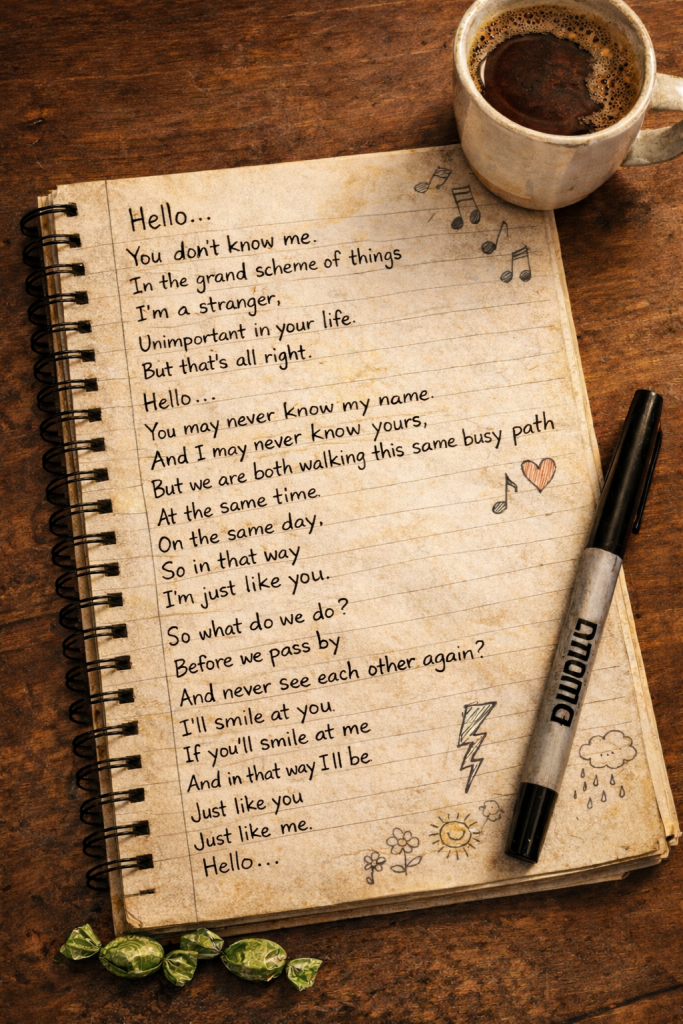 Hello...
You don't know me.
In the grand scheme of things
I'm a stranger,
Unimportant in your life.
But that's all right.
Hello...
You may never know my name.
And I may never know yours,
But we are both walking this same busy path
At the same time.
On the same day,
So in that way
I'm just like you.
So what do we do?
Before we pass by
And never see each other again?
I'll smile at you.
If you'll smile at me
And in that way I'll be
Just like you
Just like me.
Hello...